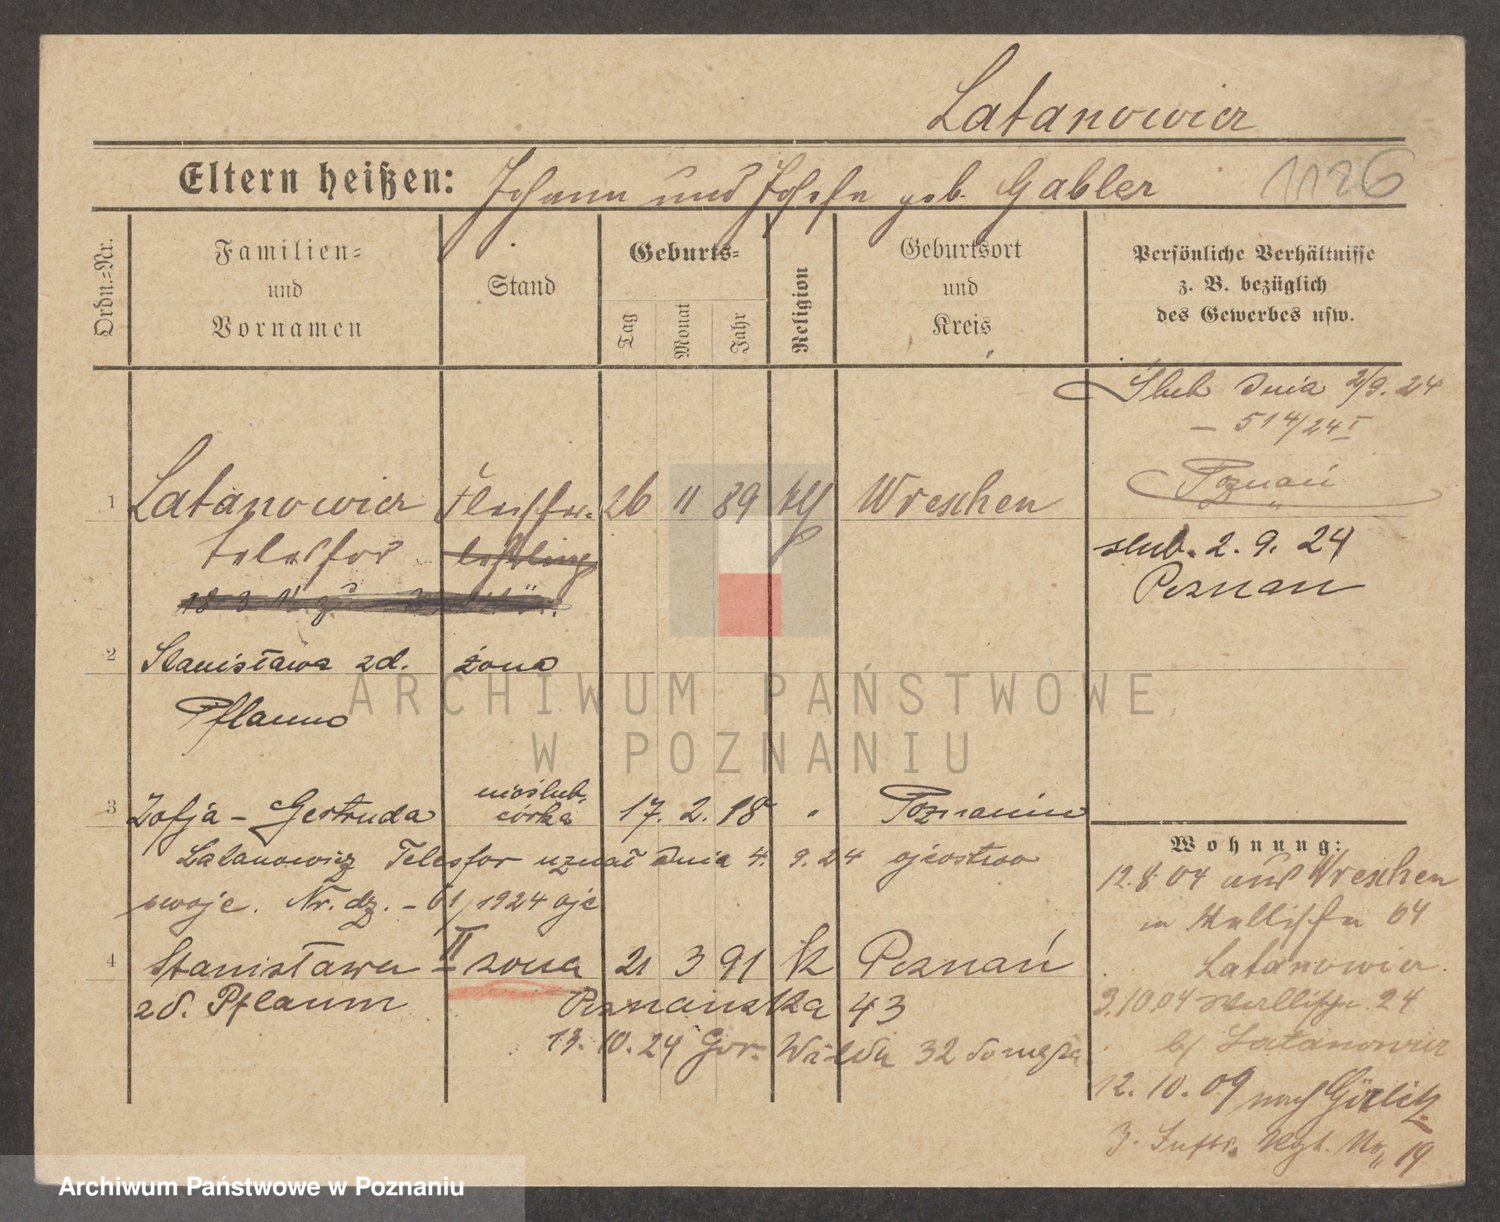 Latanowicz
Eltern heißen: Johann und Josefa geb. Gabler
1126
Ordn.-Nr.
Familien-
und
Vornamen
Stand
Geburts-
Tag
Monat
Jahr
Religion
Geburtsort
und
Kreis
Persönliche Verhältnisse
z. B. bezüglich
des Gewerbes usw.
Ślub dnia 2/9. 24
- 514/24 I
Poznań
1 Latanowicz Fleischer- 26 11 89 Wreschen
Telesfor lehrling
ślub. 2. 9. 24
Poznań
2 Stanisława zd. żona
Pflaum
3 Zofja - Gertruda nieślub. córka 17. 2. 18 " Poznaniu
Latanowicz Telesfor uznał dnia 4. 9. 24 ojcostwo
swoje. Nr. dz. - 61/1924 ojc
4 Stanisława II żona 21 3 91 k Poznań
zd. Pflaum Poznańska 43
13. 10. 24 Gór. Wilda 32
Wohnung:
12.8 04 aus Wreschen
in Wallischei 64
Latanowicz.
3.10 04 Wallischei 24
b/ Latanowicz
12. 10. 09 nach Görlitz
z. Inftr. Regt. No 19
ARCHIWUM PAŃSTWOWE
W POZNANIU
Archiwum Państwowe w Poznaniu